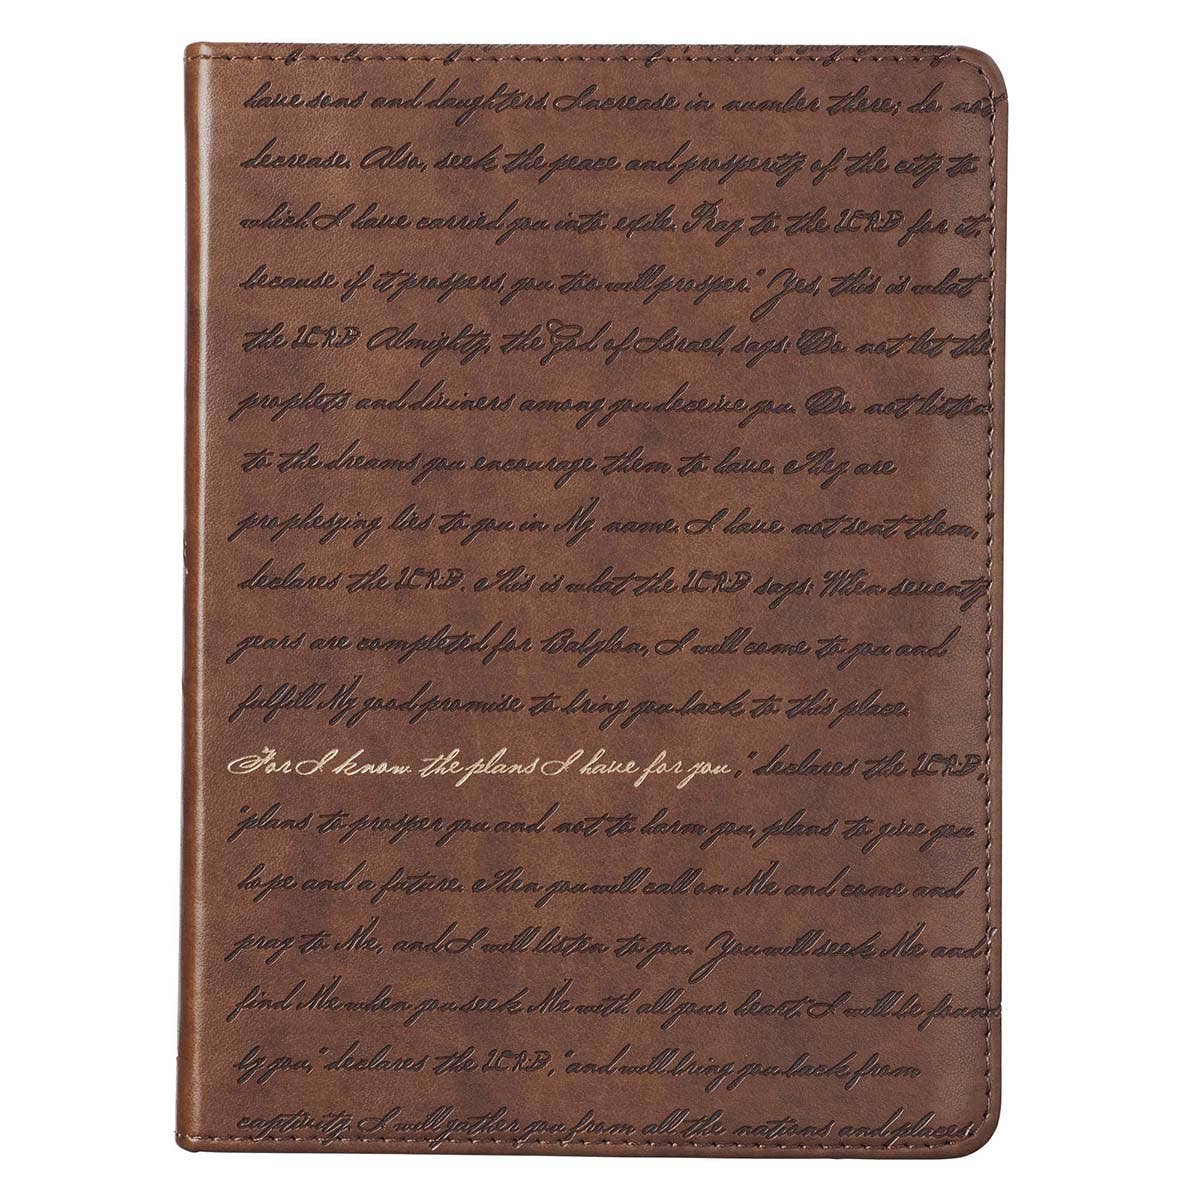 have sons and daughters. Increase in number there; do not
decrease. Also, seek the peace and prosperity of the city to
which I have carried you into exile. Pray to the LORD for it,
because if it prospers, you too will prosper." Yes, this is what
the LORD Almighty, the God of Israel, says: "Do not let the
prophets and diviners among you deceive you. Do not listen
to the dreams you encourage them to have. They are
prophesying lies to you in My name. I have not sent them,
declares the LORD. This is what the LORD says: "When seventy
years are completed for Babylon, I will come to you and
fulfill My good promise to bring you back to this place.
For I know the plans I have for you," declares the LORD,
"plans to prosper you and not to harm you, plans to give you
hope and a future. Then you will call on Me and come and
pray to Me, and I will listen to you. You will seek Me and
find Me when you seek Me with all your heart. I will be found
by you," declares the LORD, "and will bring you back from
captivity. I will gather you from all the nations and places